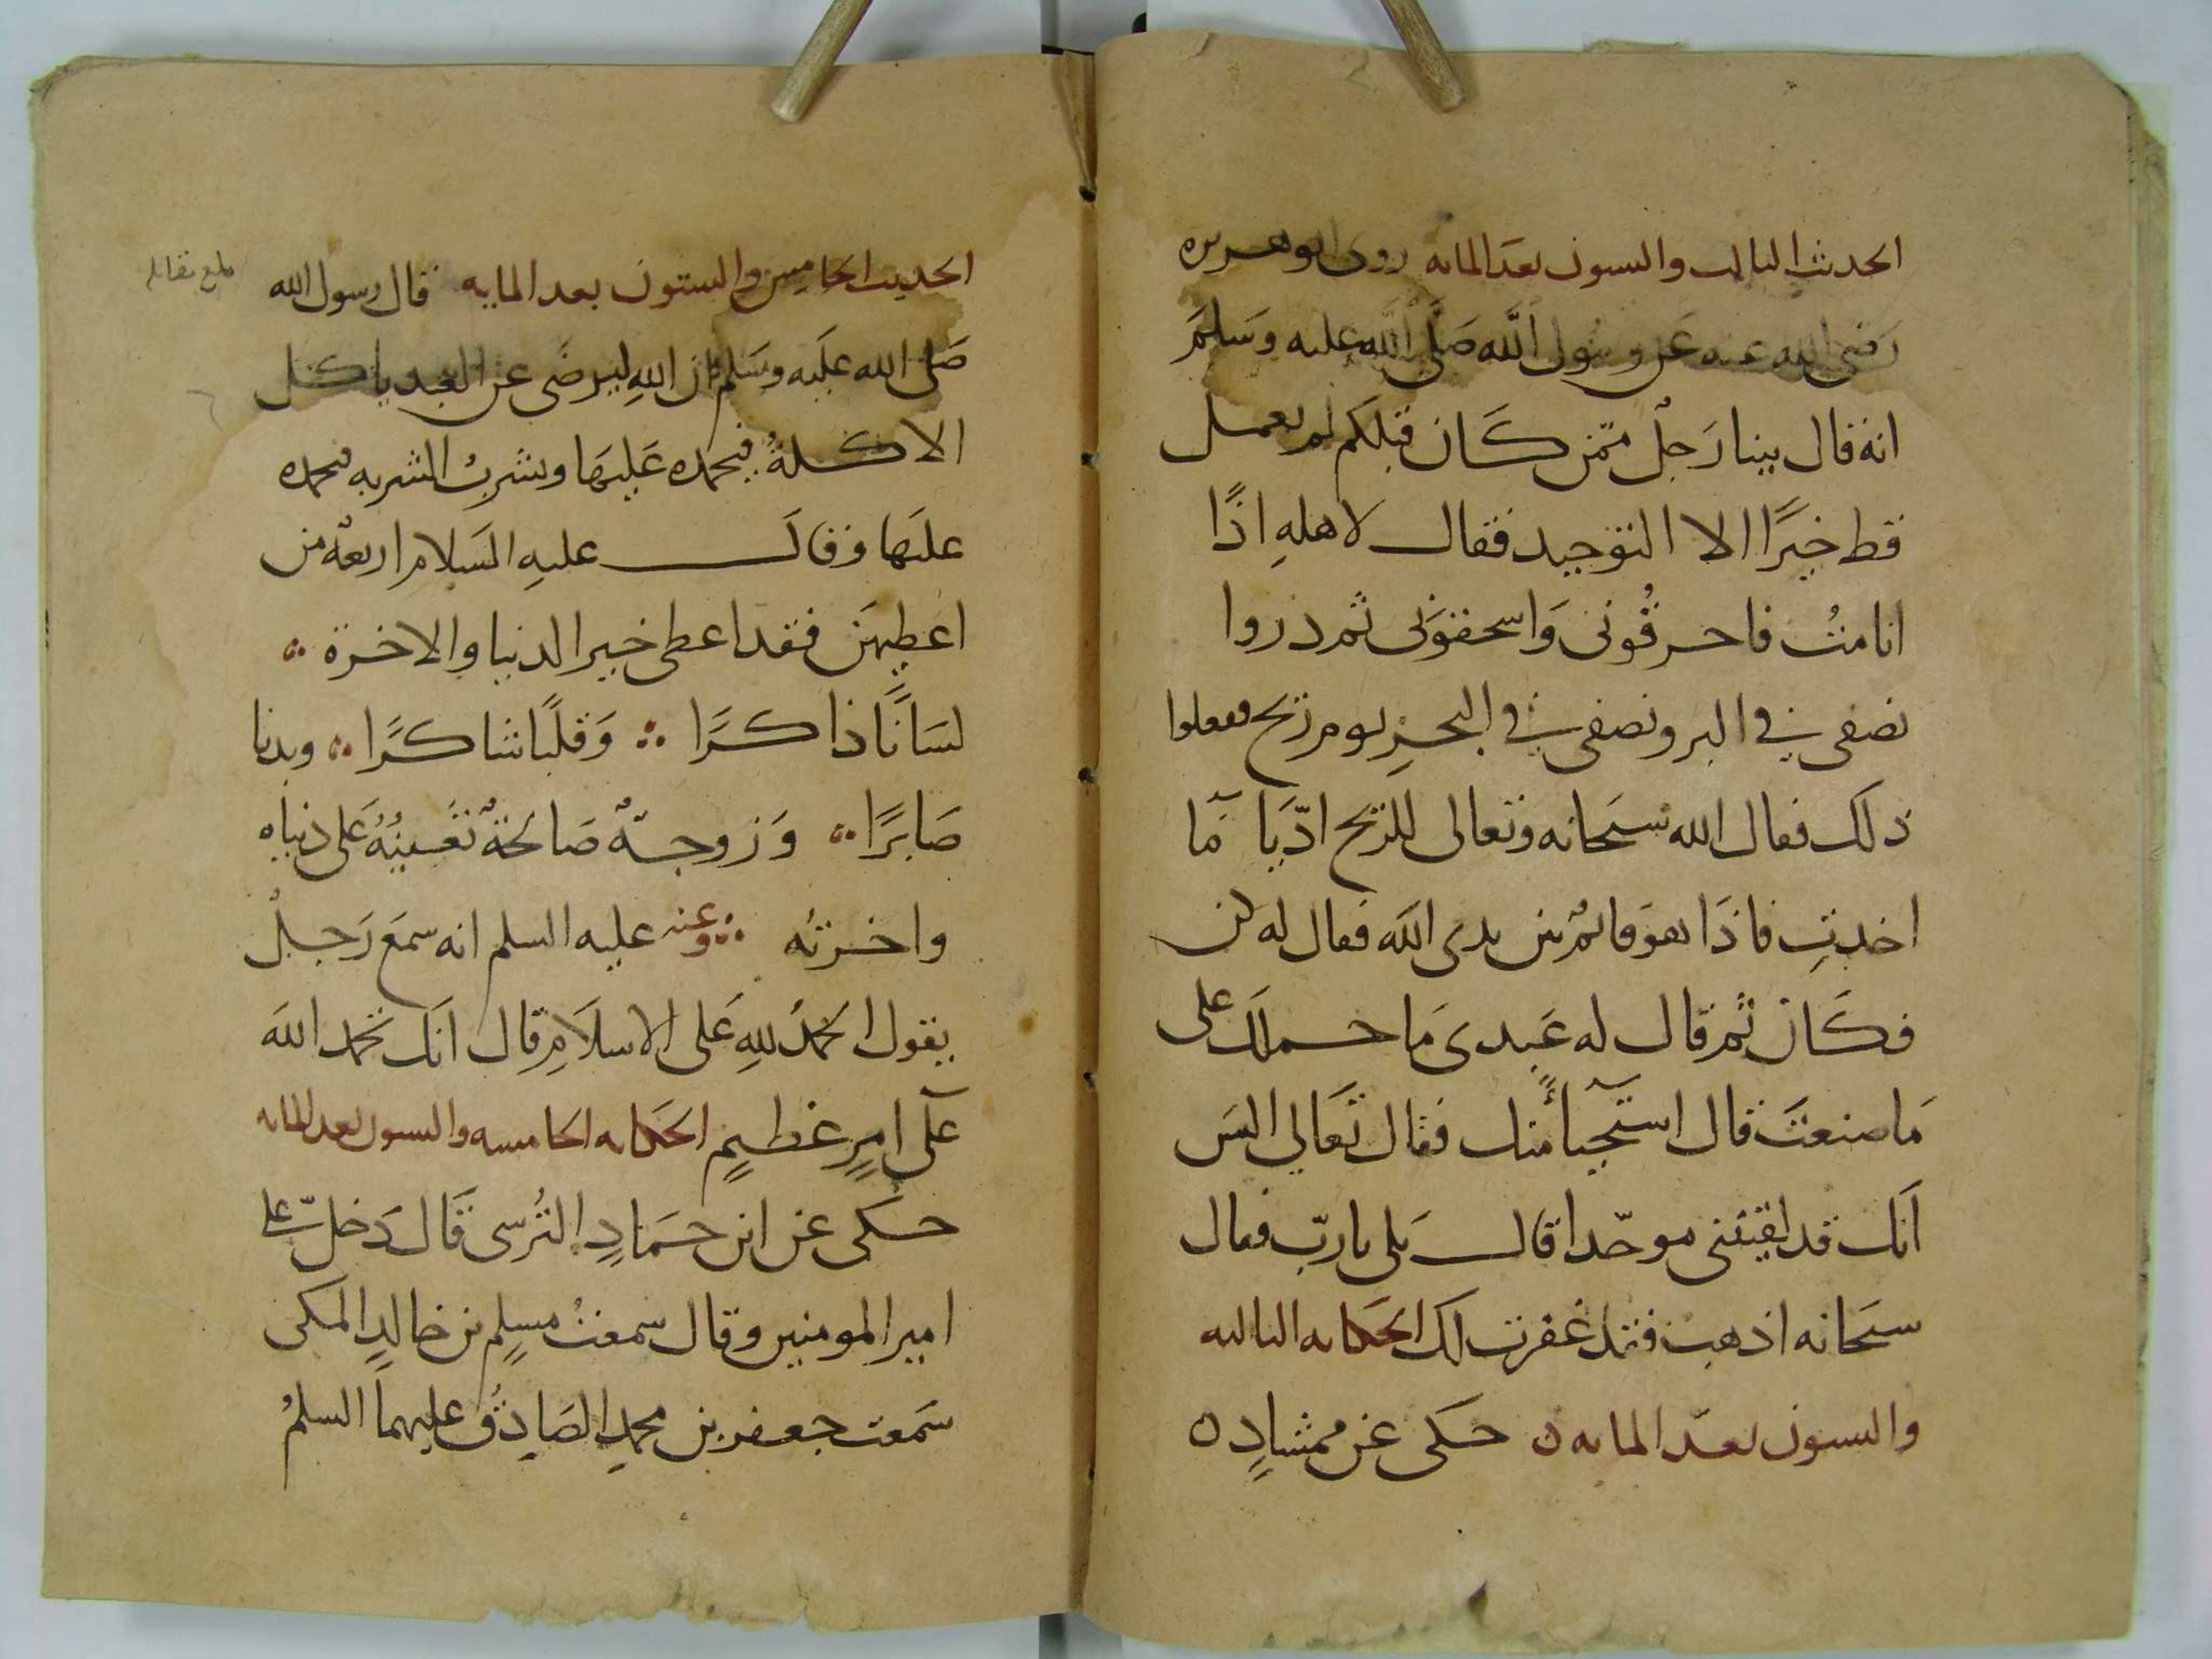 الحديث الثالث والستون بعد المايه روى ابو هريره
رَضى الله عنه عَن رسُول اللَّه صَلَّى اللَّه عليه وَسَلمَ
انه قال بينا رَجلٌ ممّن كَان قبلكم لم يعمل
قط خيرًا الا التوحيد فقال لاهلهِ اذًا
انا متُ فاحرقُونى وَاسحقوَنى ثم دروا
نصفى في البر ونصفى في البحرِ يوم ريح ففعلوا
ذلَك فقال الله سبَحانه وتعالى للريح ادّيَا مَا
اخدتِ فاذَا هوَ قائمٌ بين يدى اللَه فقال له كن
فكَان ثم قال له عَبدى مَا حملَك على
مَا صنعتَ قال استحياءً منك فقال تَعَالي اليسَ
اَنك قد لقيتنى موحّدا قال بَلى يا ربّ فقال
سبَحانه اذهب فقد غفرت لَك الحكَايه الثالثه
والستون بعدَ المايه ن حَكى عَن ممشادٍ ن
الحديث الخامِس والستون بعد المايه قال رسول الله
صَلى الله علَيه وسَلم ان اللهِ ليرضَى عن العبد ياكل
الاكلةُ فيحمده عَليهَا ويشربُ الشربه فيحمده
عليَها وقالَ عليهِ السَلام اربعةٌ من
اعطيهنَ فقد اعطى خير الدنيا والاخرة
لسَانًا ذاكرًا وَقلبًا شاكرًا وبدنا
صَابرًا وَزوجةً صَالحةً تعَينُهُ عَلى دنياه
واخرته وعنه عليه السلم انه سمعَ رَجلٌ
يقول الحَمدُ للهِ عَلى الاسلاَمِ قال انَك تحَمد اللهَ
عَلى امرٍ عَظيمٍ الحكَايه الخامسه والستون بعد المايه
حَكى عَن ابن حمَادٍ النُرسى قَال دَخل على
امير المومنين وقال سمعتُ مسلِم بن خالدٍ المكى
سَمعت جعفر بن محمدٍ الصَادِق عليهماَ السلمُ
بلغ مقابله